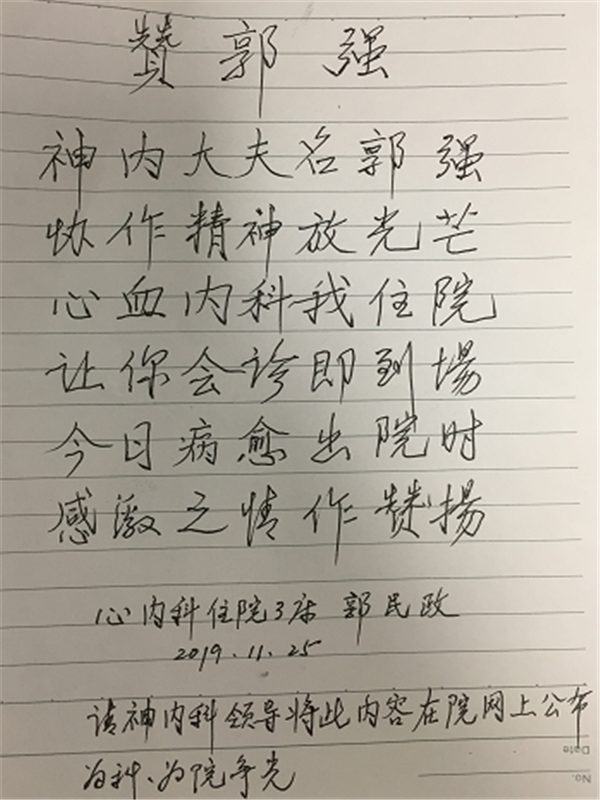 赞郭强
神内大夫名郭强
协作精神放光芒
心血内科我住院
让你会诊即到場
今日病愈出院时
感激之情作赞揚
心内科住院3床 郭民政
2019.11.25
请神内科领导将此内容在院网上公布
为科、为院争光
Date
No.